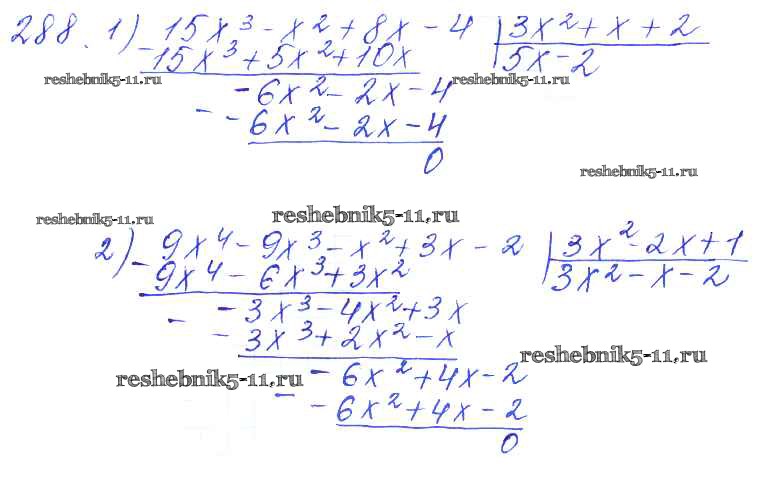 288. 1) 15x³ - x² + 8x - 4 | 3x² + x + 2
- 15x³ + 5x² + 10x | 5x - 2
reshebnik5-11.ru reshebnik5-11.ru
- 6x² - 2x - 4
- - 6x² - 2x - 4
0
reshebnik5-11.ru
reshebnik5-11.ru reshebnik5-11.ru
2) - 9x⁴ - 9x³ - x² + 3x - 2 | 3x² - 2x + 1
9x⁴ - 6x³ + 3x² | 3x² - x - 2
- 3x³ - 4x² + 3x
- - 3x³ + 2x² - x
reshebnik5-11.ru
reshebnik5-11.ru - 6x² + 4x - 2
- - 6x² + 4x - 2
0